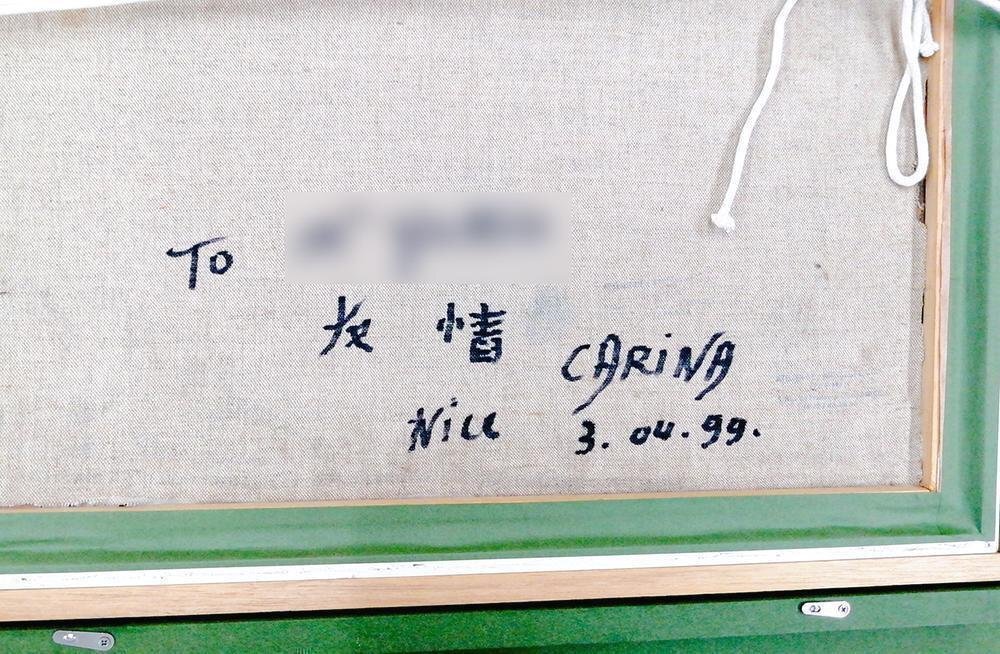 To
友情 CARINA
Nice 3.04.99.